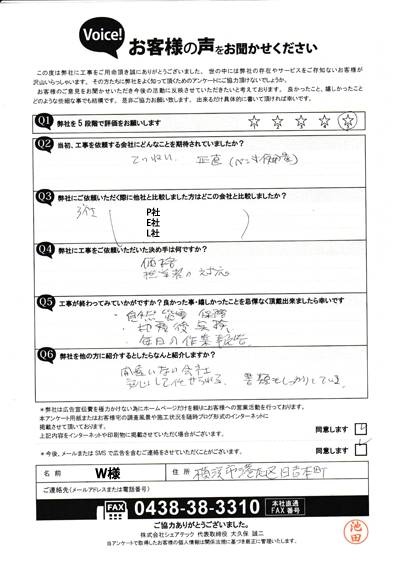 Voice!
お客様の声をお聞かせください
この度は弊社に工事をご用命頂き誠にありがとうございました。世の中には弊社の存在やサービスをご存知ないお客様が
沢山いらっしゃいます。その方たちに弊社をよく知って頂くためのアンケートにご協力頂けないでしょうか。
お客様のご意見をお聞かせいただき今後の活動に反映させていただきたいと考えております。良かったこと、嬉しかったこと
どのような些細な事でも結構です。是非ご協力お願い致します。出来るだけ具体的に書いて頂ければ幸いです。
Q1 弊社を5段階で評価をお願いします ☆ ☆ ☆ ☆ ☆
Q2 当初、工事を依頼する会社にどんなことを期待されていましたか？
ていねい 正直
Q3 弊社にご依頼いただく際に他社と比較しました方はどこの会社と比較しましたか？
3社
P社
E社
L社
Q4 弊社に工事をご依頼いただいた決め手は何ですか？
価格
担当者の対応
Q5 工事が終わってみていかがですか？良かった事・嬉しかったことを忌憚なく頂戴出来ましたら幸いです
・自然災害 保障
・毎日の作業報告
Q6 弊社を他の方に紹介するとしたらなんと紹介しますか？
間違いない会社
安心して任せられる。 書類もしっかりしている。
※弊社は広告宣伝費を極力かけない為にホームページだけを頼りにお客様への営業活動を行っております。
本アンケート用紙またはお客様宅の調査風景や施工状況を随時ブログ形式のインターネットに
掲載させて頂いております。
上記内容をインターネットや印刷物に掲載させていただく場合がございます。 同意します
※今後、メールまたは SMS で広告を含むご連絡をさせていただくことがございます。 同意します
名前 W様 住所 横浜市港北区日吉本町
ご連絡先(メールアドレスまたは電話番号)
FAX 0438-38-3310 本社直通 FAX 番号
ご協力ありがとうございました。
株式会社シェアテック 代表取締役 大久保 誠二
当アンケートで取得したお客様の個人情報は関係法規に基づき厳正に管理いたします。
池田